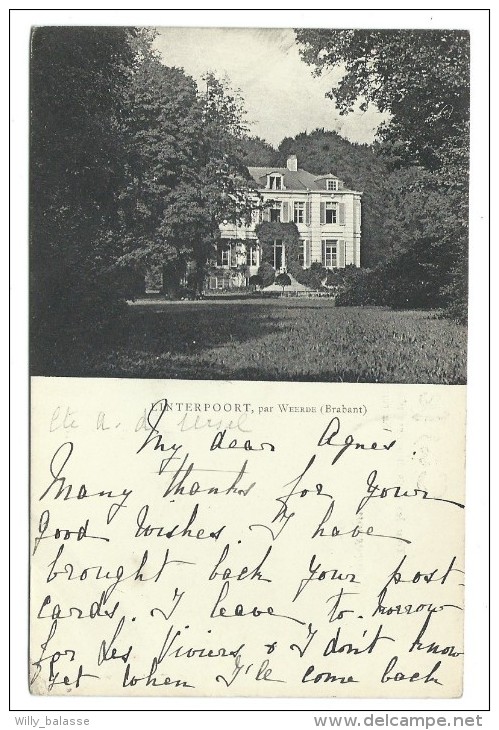 LINTERPOORT, par WEERDE (Brabant)
Cte A. d'Ursel
My dear Agnes.
Many thanks for your
good wishes. I have
brought back your post
cards. I leave to-morrow
for Les Viviers & I don't know
yet when I'll come back
Willy_balasse
http://www.delcampe.net